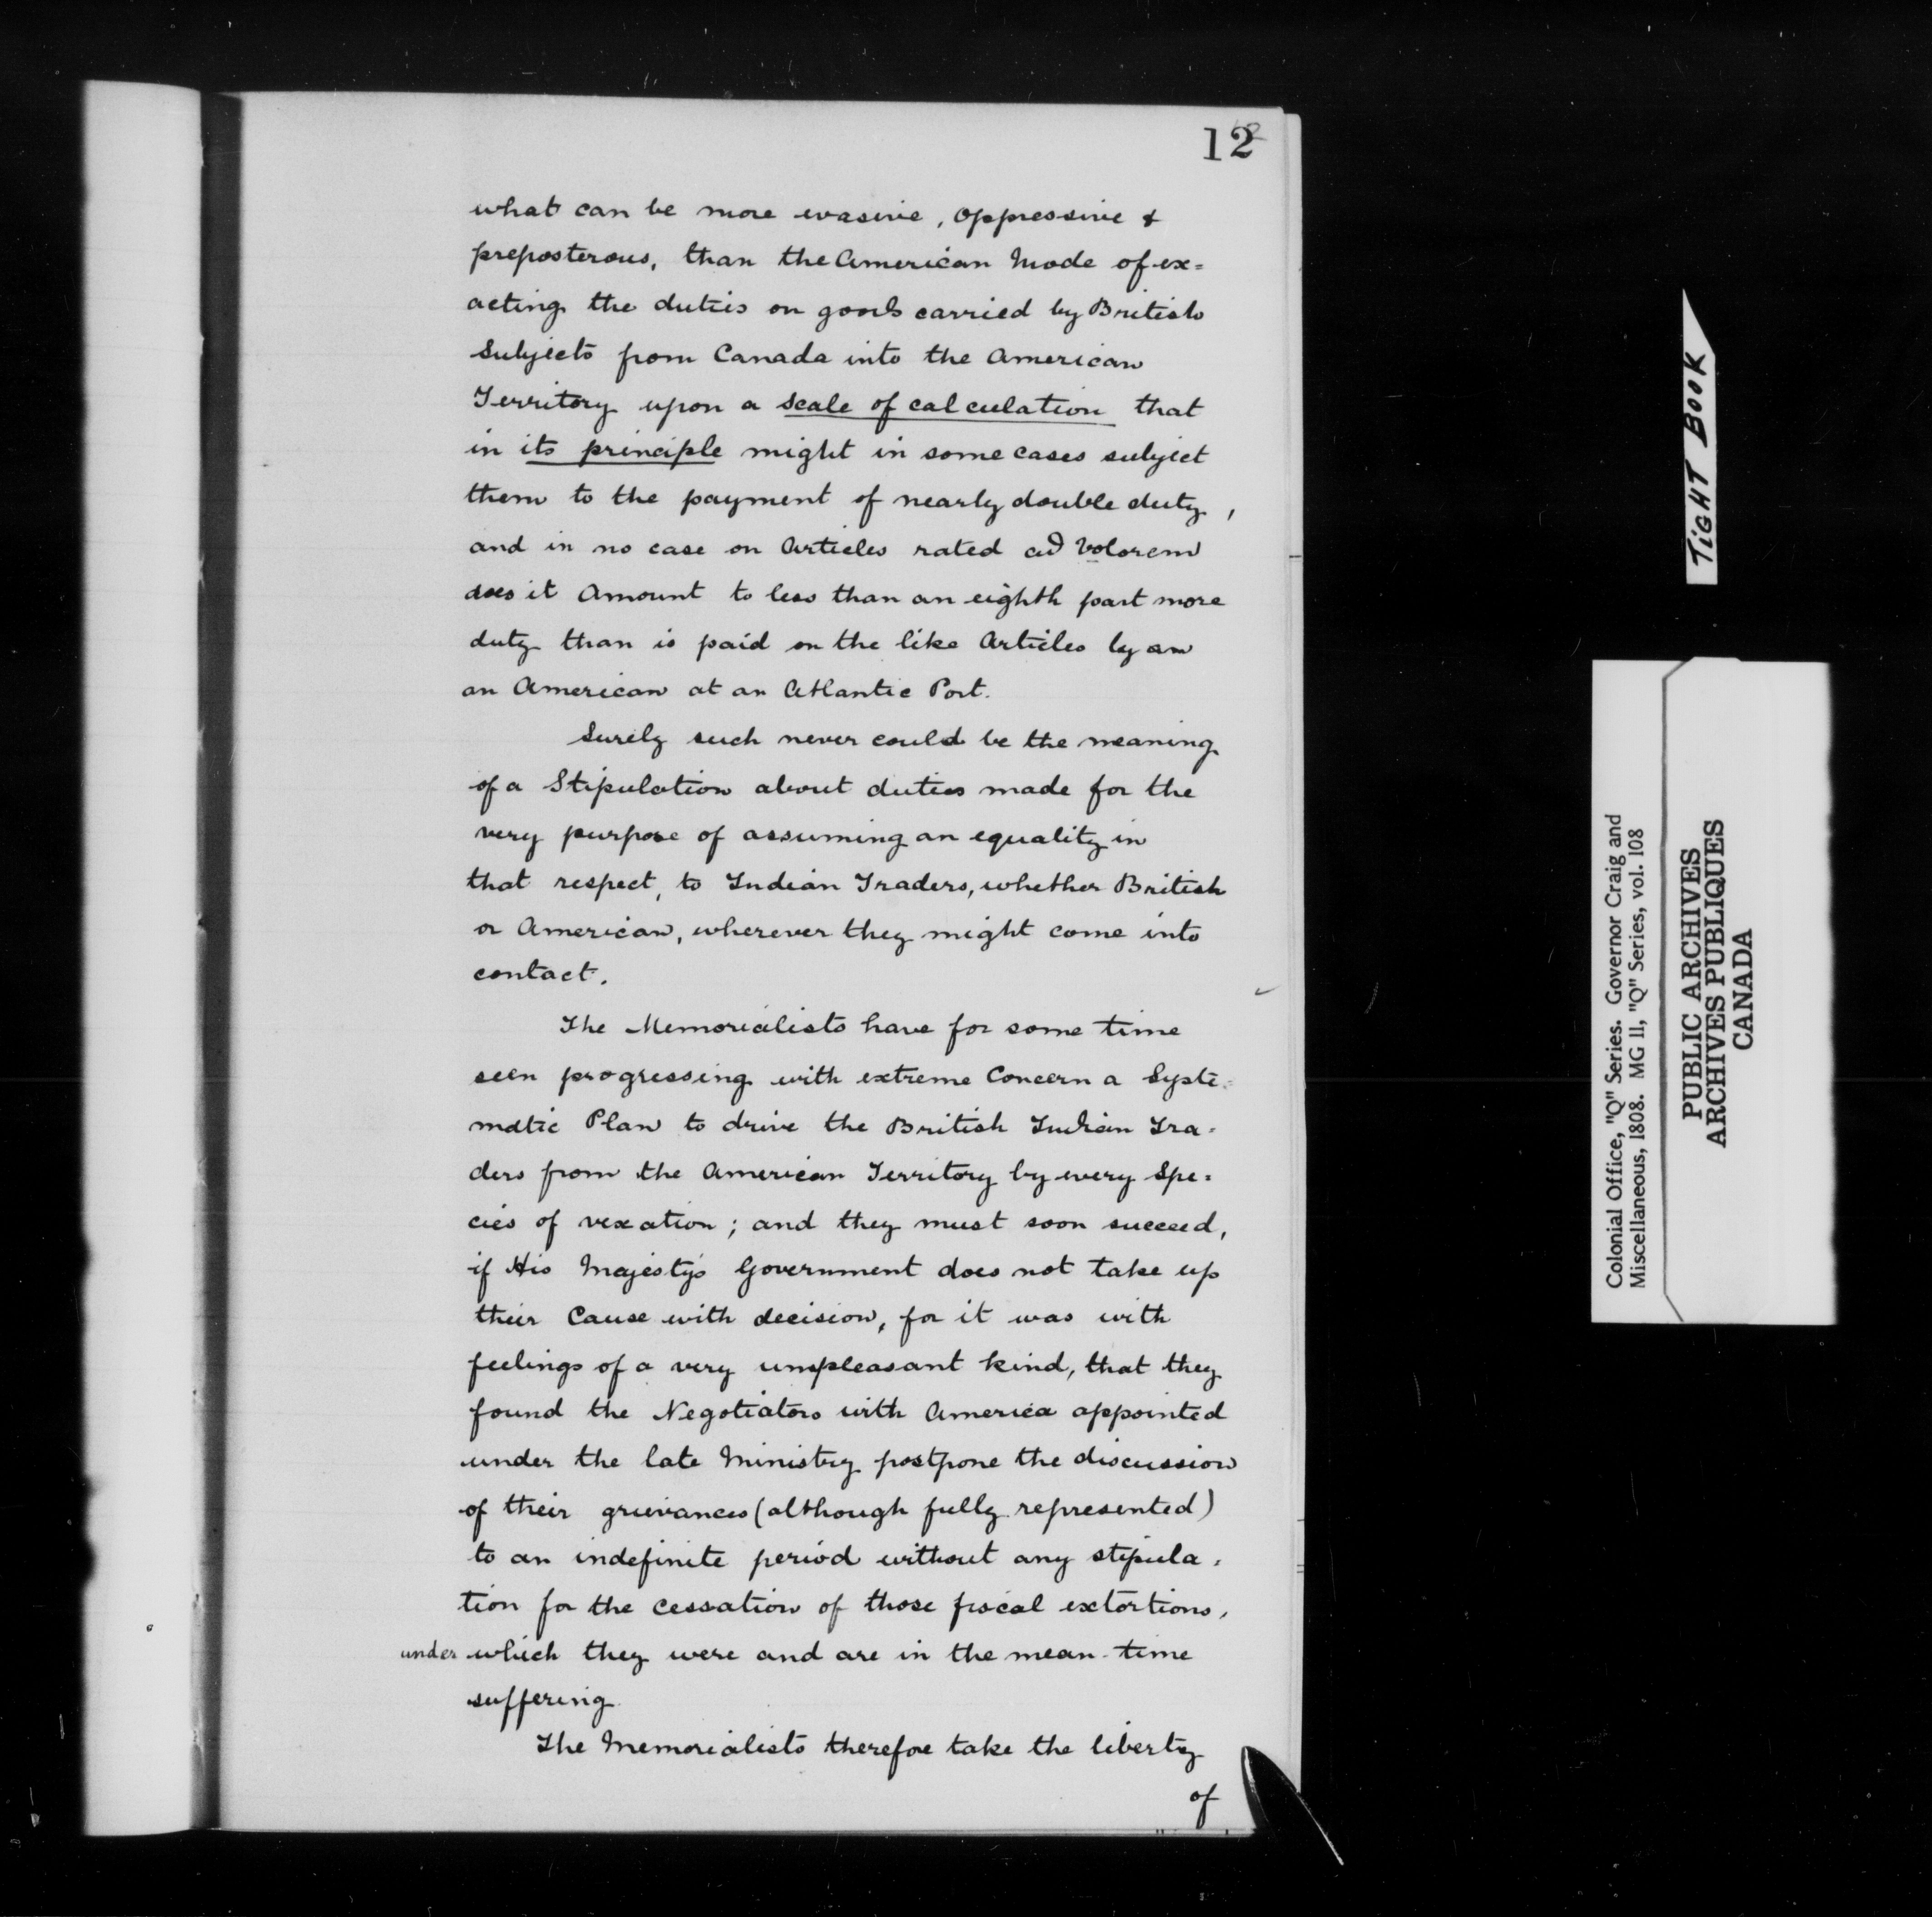 12
what can be more evasive, oppressive &
preposterous, than the American Mode of ex=
acting the duties on goods carried by British
Subjects from Canada into the American
Territory upon a scale of calculation that
in its principle might in some cases subject
them to the payment of nearly double duty,
and in no case on Articles rated ad Valorem
does it Amount to less than an eighth part more
duty than is paid on the like Articles by an
an American at an Atlantic Port.
Surely such never could be the meaning
of a Stipulation about duties made for the
very purpose of assuming an equality in
that respect, to Indian Traders, whether British
or American, wherever they might come into
contact.
The Memorialists have for some time
seen progressing with extreme Concern a Syste=
matic Plan to drive the British Indian Tra=
ders from the American Territory by every Spe=
cies of vexation; and they must soon succeed,
if His Majesty's Government does not take up
their Cause with decision, for it was with
feelings of a very unpleasant kind, that they
found the Negotiators with America appointed
under the late Ministry postpone the discussion
of their grievances (although fully represented)
to an indefinite period without any stipula=
tion for the cessation of those fiscal extortions,
under which they were and are in the mean-time
suffering
The Memorialists therefore take the liberty
of
TIGHT BOOK
Colonial Office, "Q" Series. Governor Craig and
Miscellaneous, 1808. MG 11, "Q" Series, vol. 108
PUBLIC ARCHIVES
ARCHIVES PUBLIQUES
CANADA